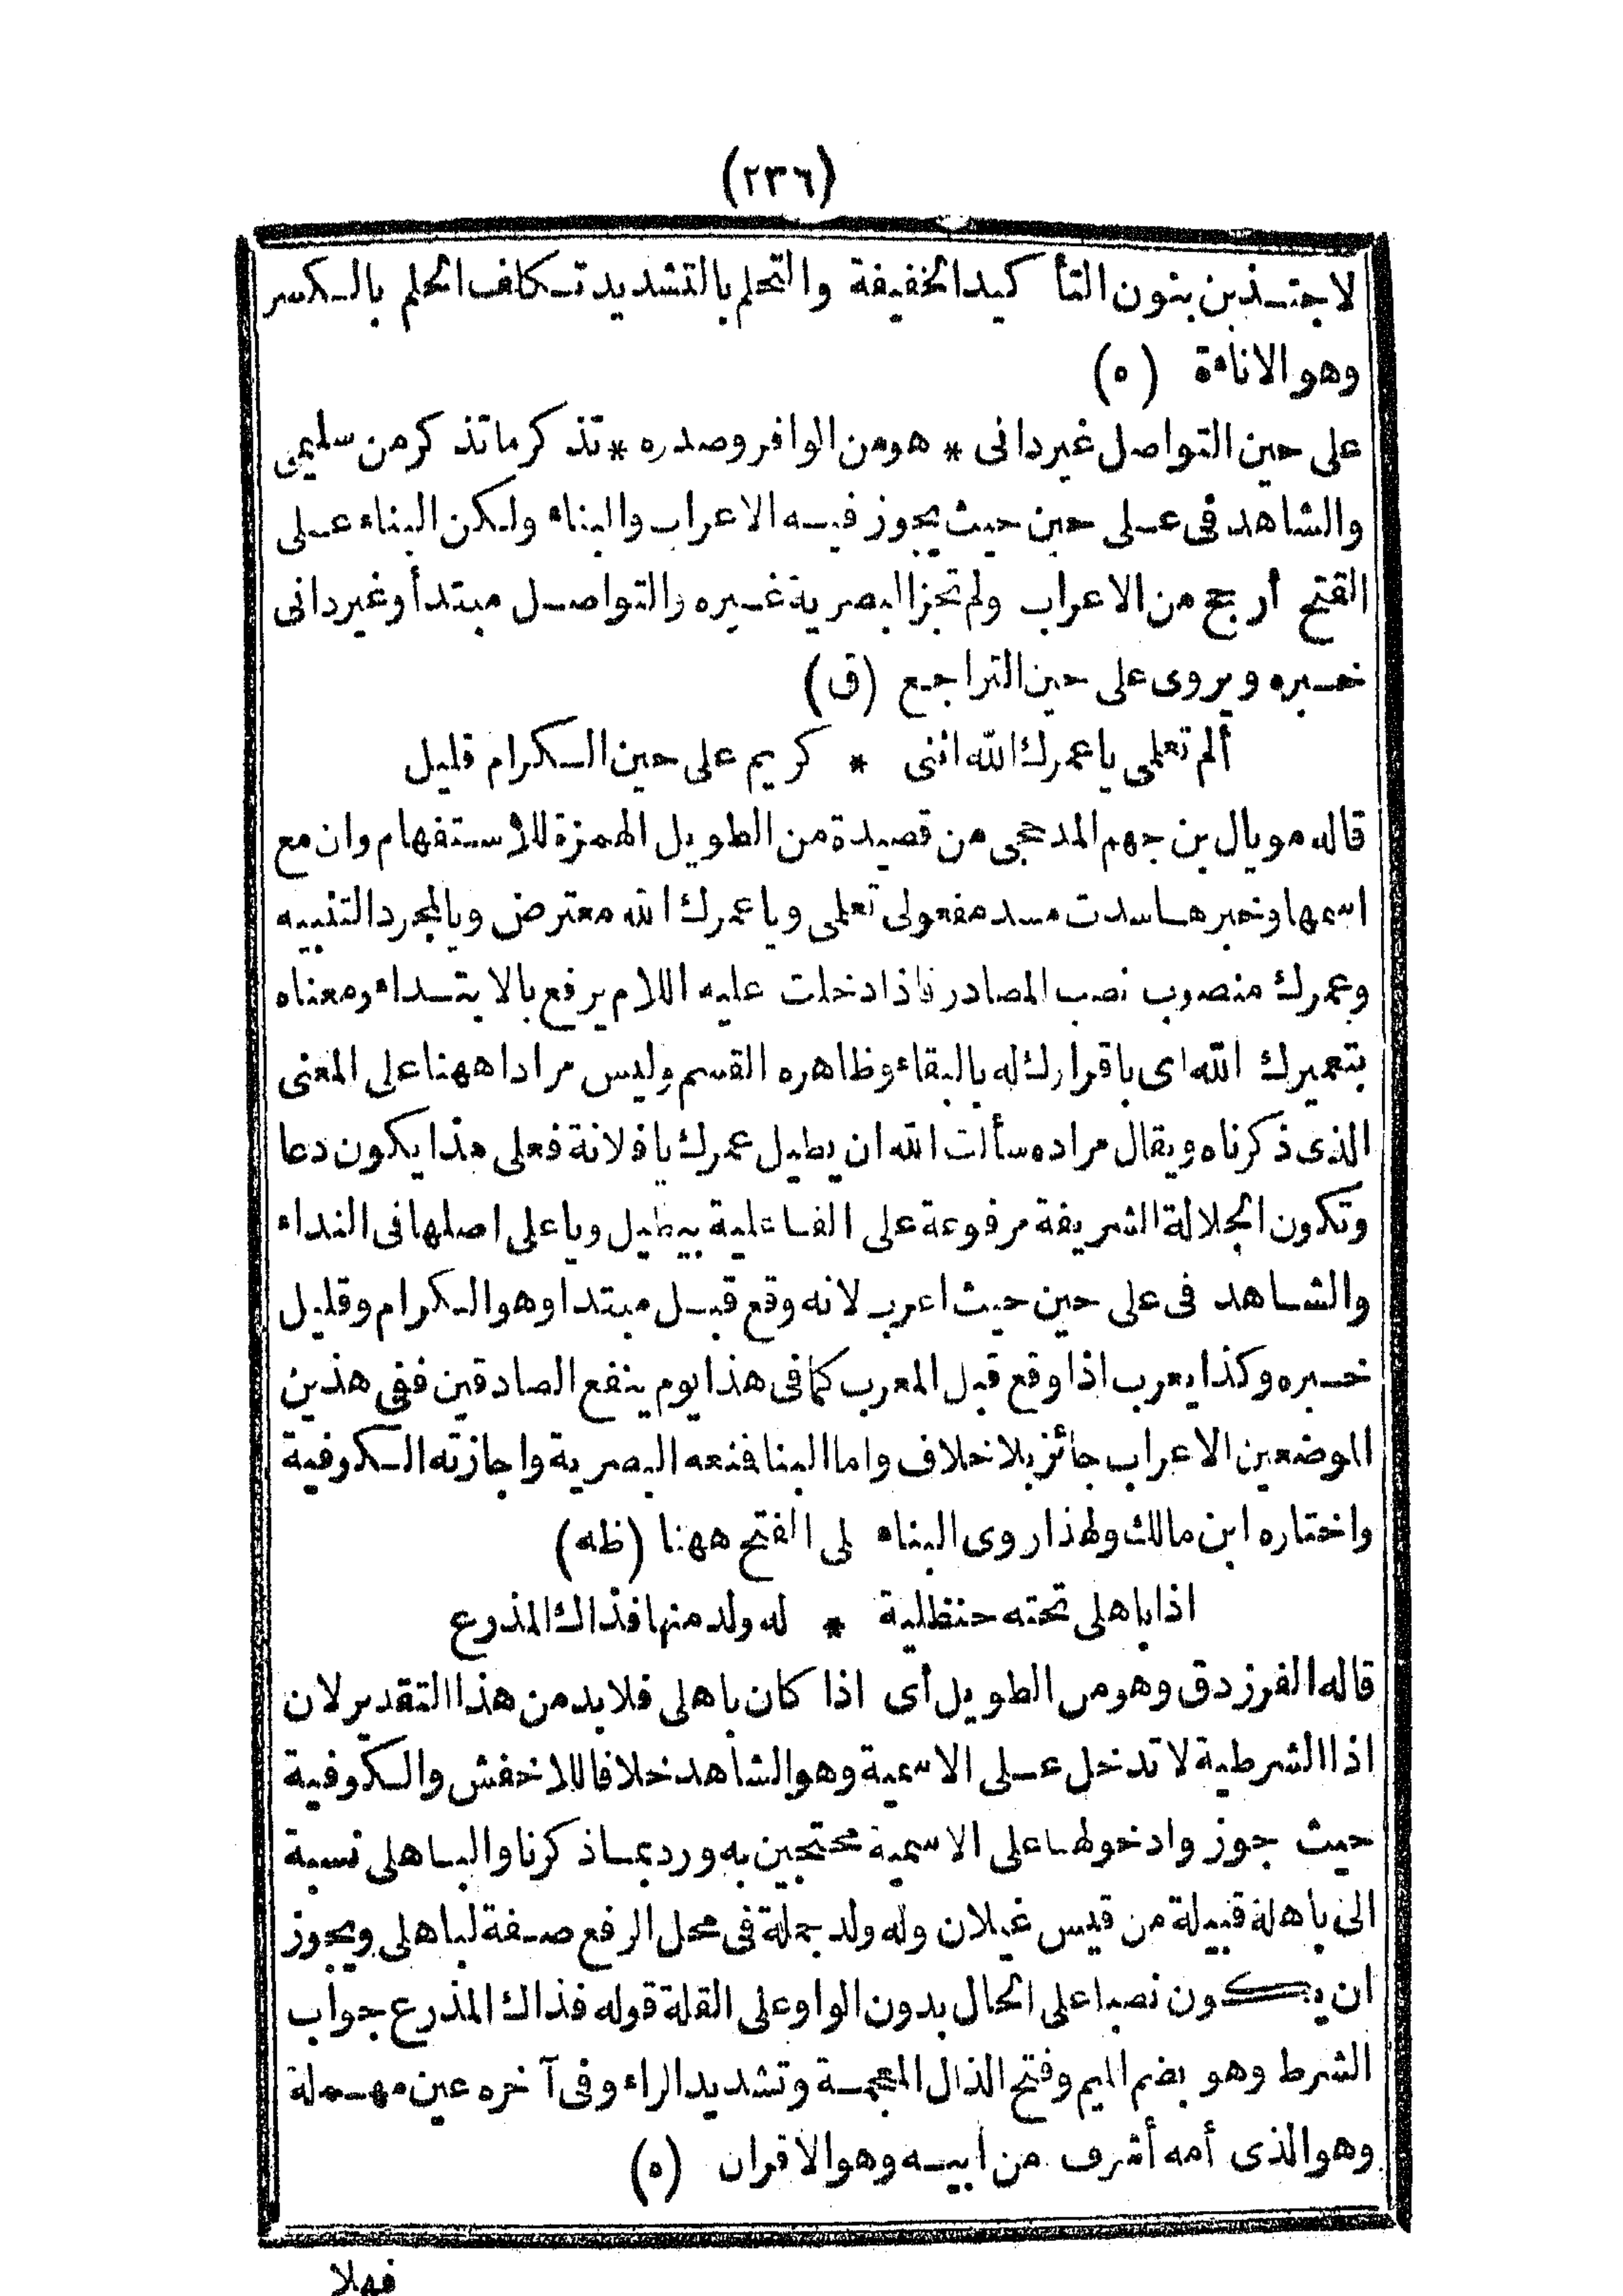 (٢٣٦)
لاجتذبن بنون التأكيد الخفيفة والتحلم بالتشديد تكلف الحلم بالكسر
وهو الاناءة (ه)
على حين التواصل غير دانى * هو من الوافر وصدره * تذكر ما تذكر من سليمى
والشاهد فى على حين حيث يجوز فيه الاعراب والبناء ولكن البناء على
الفتح أرجح من الاعراب ولم تجز البصرية غيره والتواصل مبتدأ وغير دانى
خبره ويروى على حين التراجع (ق)
ألم تعلمى يا عمرك الله اننى * كريم على حين الكرام قليل
قاله مويال بن جهم المدحجى من قصيدة من الطويل الهمزة للاستفهام وان مع
اسمها وخبرها سدت مسد مفعولى تعلمى ويا عمرك الله معترض ويا لمجرد التنبيه
وعمرك منصوب نصب المصادر فاذا دخلت عليه اللام يرفع بالابتداء ومعناه
بتعميرك الله اى باقرارك له بالبقاء وظاهره القسم وليس مرادا ههنا على المعنى
الذى ذكرناه ويقال مراده سألت الله ان يطيل عمرك يا فلانة فعلى هذا يكون دعا
وتكون الجلالة الشريفة مرفوعة على الفاعلية بيطيل ويا على اصلها فى النداء
والشاهد فى على حين حيث اعرب لانه وقع قبل مبتدا وهو الكرام وقليل
خبره وكذا يعرب اذا وقع قبل المعرب كما فى هذا يوم ينفع الصادقين ففى هذين
الموضعين الاعراب جائز بلا خلاف واما البنا فنعه البصرية واجازته الكوفية
واختاره ابن مالك ولهذا روى البناء لى الفتح ههنا (ظه)
اذا باهلى تحته حنظلية * له ولد منها فذاك المذرع
قاله الفرزدق وهو من الطويل أى اذا كان باهلى فلا بد من هذا التقدير لان
اذا الشرطية لا تدخل على الاسمية وهو الشاهد خلافا للاخفش والكوفية
حيث جوزوا دخولها على الاسمية محتجين به ورد بما ذكرنا والباهلى نسبة
الى باهلة قبيلة من قيس غيلان وله ولد جملة فى محل الرفع صفة لباهلى ويجوز
ان يكون نصبا على الحال بدون الواو على القلة قوله فذاك المذرع جواب
الشرط وهو بضم الميم وفتح الذال المعجمة وتشديد الراء وفى آخره عين مهملة
وهو الذى أمه أشرف من أبيه وهو الاقران (ه)
فهلا